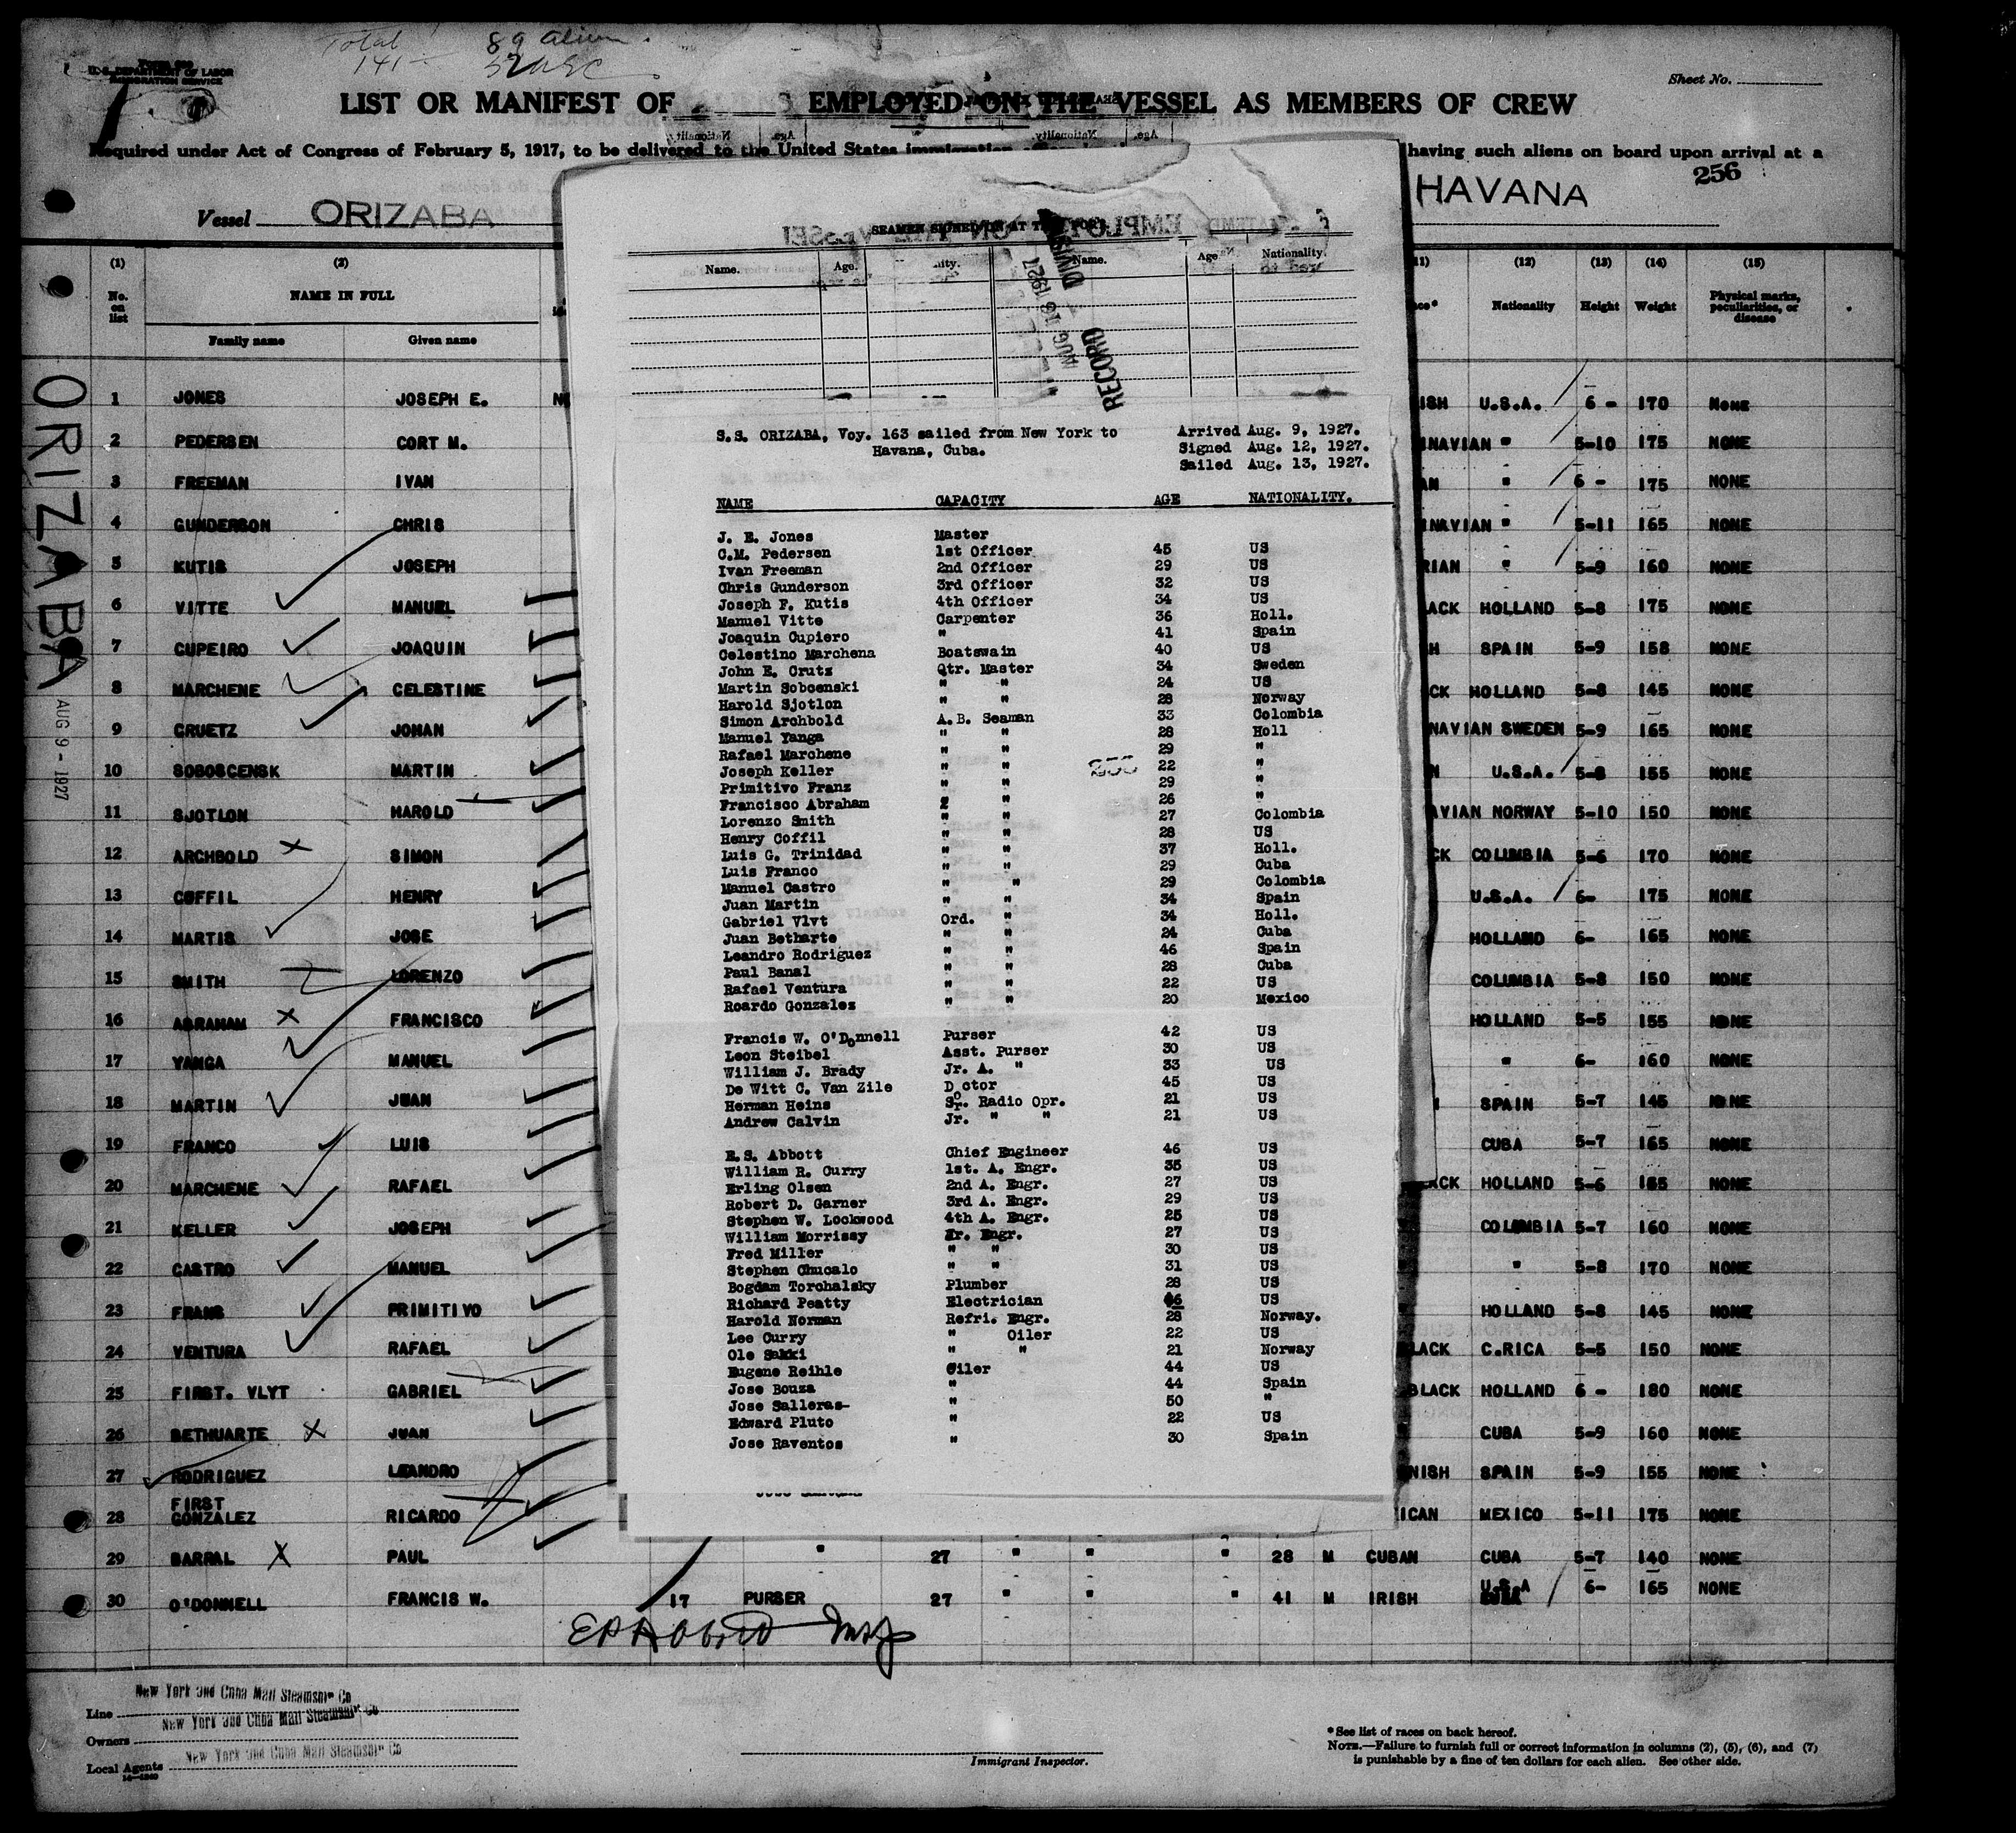 Total 89 Alien.
141 - 52 USC
U. S. DEPARTMENT OF LABOR
IMMIGRATION SERVICE
Sheet No.
LIST OR MANIFEST OF EMPLOYED ON THE VESSEL AS MEMBERS OF CREW
Required under Act of Congress of February 5, 1917, to be delivered to the United States immigration having such aliens on board upon arrival at a
256
Vessel ORIZABA HAVANA
(1) (2) (12) (13) (14) (15)
No. on list NAME IN FULL Nationality Height Weight Physical marks, peculiarities, or disease
Family name Given name
ORIZABA
AUG 9 - 1927
1 JONES JOSEPH E. ISH U.S.A. 6 - 170 NONE
2 PEDERSEN CORT M. NAVIAN " 5-10 175 NONE
3 FREEMAN IVAN AN " 6 - 175 NONE
4 GUNDERSON CHRIS NAVIAN " 5-11 165 NONE
5 KUTIS JOSEPH RIAN " 5-9 160 NONE
6 VITTE MANUEL ACK HOLLAND 5-8 175 NONE
7 CUPEIRO JOAQUIN H SPAIN 5-9 158 NONE
8 MARCHENE CELESTINE CK HOLLAND 5-8 145 NONE
9 CRUETZ JOHAN NAVIAN SWEDEN 5-9 165 NONE
10 SOBOSCENSK MARTIN N U.S.A. 5-8 155 NONE
11 SJOTLON HAROLD AVIAN NORWAY 5-10 150 NONE
12 ARCHBOLD SIMON CK COLUMBIA 5-6 170 NONE
13 COFFIL HENRY U.S.A. 6- 175 NONE
14 MARTIS JOSE HOLLAND 6- 165 NONE
15 SMITH LORENZO COLUMBIA 5-8 150 NONE
16 ABRAHAM FRANCISCO HOLLAND 5-5 155 NONE
17 YANGA MANUEL " 6- 160 NONE
18 MARTIN JUAN SPAIN 5-7 145 NONE
19 FRANCO LUIS CUBA 5-7 165 NONE
20 MARCHENE RAFAEL ACK HOLLAND 5-6 165 NONE
21 KELLER JOSEPH COLUMBIA 5-7 160 NONE
22 CASTRO MANUEL " 5-8 170 NONE
23 FRANS PRIMITIVO HOLLAND 5-8 145 NONE
24 VENTURA RAFAEL LACK C.RICA 5-5 150 NONE
25 FIRST. VLYT GABRIEL BLACK HOLLAND 6 - 180 NONE
26 BETHUARTE JUAN CUBA 5-9 160 NONE
27 RODRIGUEZ LEANDRO NISH SPAIN 5-9 155 NONE
28 FIRST GONZALEZ RICARDO ICAN MEXICO 5-11 175 NONE
29 BARRAL PAUL " 27 " " " 28 M CUBAN CUBA 5-7 140 NONE
30 O'DONNELL FRANCIS W. 17 PURSER 27 " " " 41 M IRISH U.S.A 6- 165 NONE
SEAMEN SIGNED ON AT
Name. Age. Name. Age Nationality.
RECORD DIVIS
AUG 10 1927
S.S. ORIZABA, Voy. 163 sailed from New York to Havana, Cuba.
Arrived Aug. 9, 1927.
Signed Aug. 12, 1927.
Sailed Aug. 13, 1927.
NAME CAPACITY AGE NATIONALITY.
J. E. Jones Master
C.M. Pedersen 1st Officer 45 US
Ivan Freeman 2nd Officer 29 US
Chris Gunderson 3rd Officer 32 US
Joseph F. Kutis 4th Officer 34 US
Manuel Vitte Carpenter 36 Holl.
Joaquin Cupiero " 41 Spain
Celestino Marchena Boatswain 40 US
John E. Crutz Qtr. Master 34 Sweden
Martin Soboenski " " 24 US
Harold Sjotlon " " 28 Norway
Simon Archbold A.B. Seaman 33 Colombia
Manuel Yanga " " 28 Holl
Rafael Marchene " " 29 "
Joseph Keller " " 22 "
Primitivo Franz " " 29 "
Francisco Abraham " " 26 "
Lorenzo Smith " " 27 Colombia
Henry Coffil " " 28 US
Luis G. Trinidad " " 37 Holl.
Luis Franco " " 29 Cuba
Manuel Castro " " 29 Colombia
Juan Martin " " 34 Spain
Gabriel Vlvt Ord. " 34 Holl.
Juan Betharte " " 24 Cuba
Leandro Rodriguez " " 46 Spain
Paul Banal " " 28 Cuba
Rafael Ventura " " 22 US
Roardo Gonzales " " 20 Mexico
Francis W. O'Donnell Purser 42 US
Leon Steibel Asst. Purser 30 US
William J. Brady Jr. A. " 33 US
De Witt C. Van Zile Doctor 45 US
Herman Heins Sr. Radio Opr. 21 US
Andrew Calvin Jr. " " 21 US
E.S. Abbott Chief Engineer 46 US
William R. Curry 1st. A. Engr. 35 US
Erling Olsen 2nd A. Engr. 27 US
Robert D. Garner 3rd A. Engr. 29 US
Stephen W. Lockwood 4th A. Engr. 25 US
William Morrissy Jr. Engr. 27 US
Fred Miller " " 30 US
Stephen Chucalo " " 31 US
Bogdam Torchalsky Plumber 28 US
Richard Peatty Electrician 46 US
Harold Norman Refri. Engr. 28 Norway.
Lee Curry " Oiler 22 US
Ole Sakki " " 21 Norway
Eugene Reihle Oiler 44 US
Jose Bouza " 44 Spain
Jose Salleras- " 50 "
Edward Pluto " 22 US
Jose Raventos " 30 Spain
Line New York and Cuba Mail Steamship Co
Owners New York and Cuba Mail Steamship Co
Local Agents New York and Cuba Mail Steamship Co
Immigrant Inspector.
*See list of races on back hereof.
NOTE.—Failure to furnish full or correct information in columns (2), (5), (6), and (7)
is punishable by a fine of ten dollars for each alien. See other side.